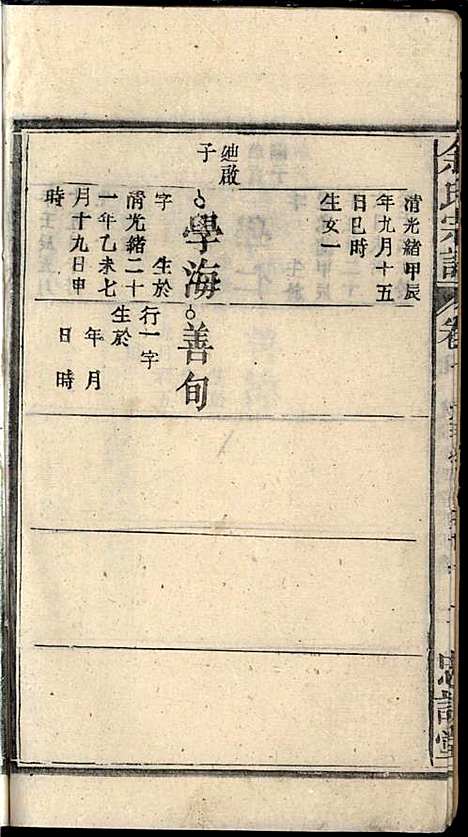 清光緒甲辰
年九月十五
日巳時
生女一
廸啟
子
學海
字　生於
清光緒二十
一年乙未七
月十九日申
時
善旬
行一字
生於
年月
日時
氏宗譜
卷
忠誥堂